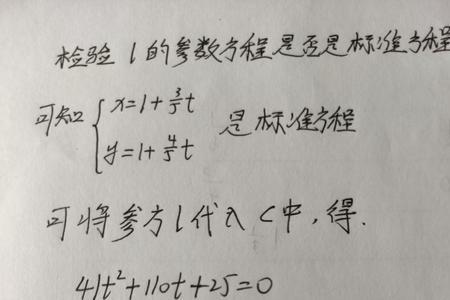 检验 l 的参数方程是否是标准方程
可知 { x=1+3/5t 是标准方程
y=1+4/5t
可将参方 l 代入 C中,得.
41t²+110t+25=0